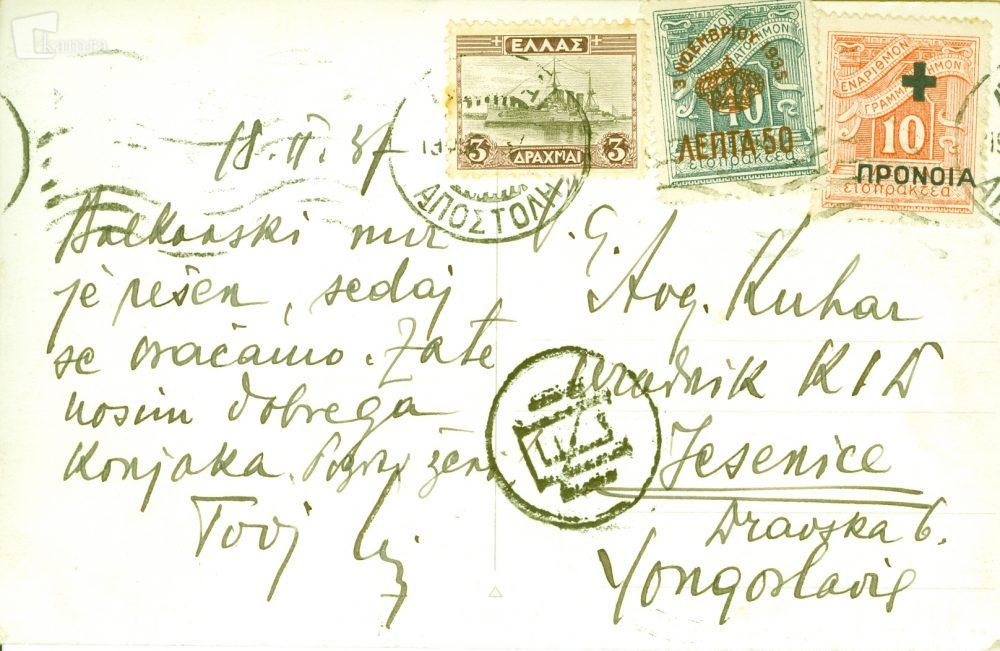 kamra
ΕΛΛΑΣ
3 ΔΡΑΧΜΑΙ 3
3 ΝΟΕΜΒΡΙΟΥ 1935
40
ΛΕΠΤΑ·50
εισπρακτέα
ΕΝΑΡΙΘΜΟΝ
ΓΡΑΜΜΑΤΟΣΗΜΟΝ
10
ΠΡΟΝΟΙΑ
εισπρακτέα
ΑΠΟΣΤΟΛΗ
18. II. 37
Balkanski mir
je rešen, sedaj
se vračamo. Zate
nosim dobrega
Konjaka. Pozdrav ženi
Tvoj
G.
Avg. Kuhar
uradnik KID
Jesenice
Dravska 6.
Yongoslavie